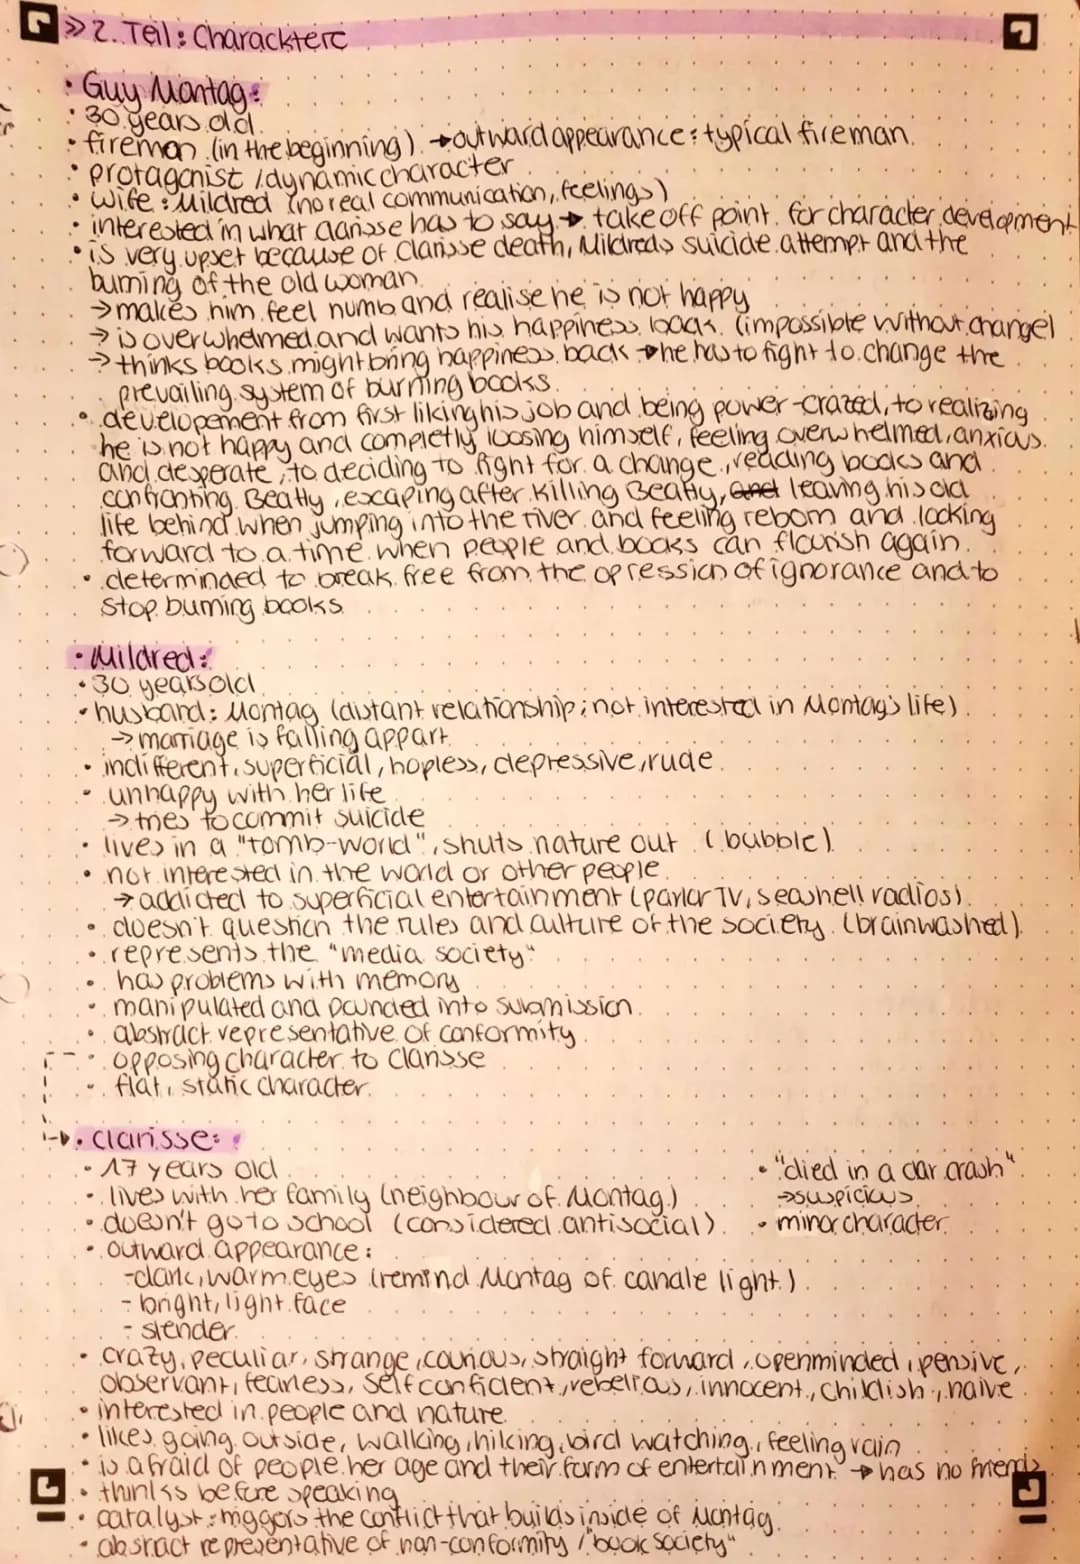 >> 2. Teil: Characktere
• Guy Montag:
• 30 years old
• fireman (in the beginning) → outward appearance: typical fireman
• protagonist / dynamic character
• wife: Mildred (no real communication, feelings)
• interested in what Clarisse has to say → take off point for character development
• is very upset because of Clarisse death, Mildreds suicide attempt and the
burning of the old woman
→ makes him feel numb and realise he is not happy
→ is overwhelmed and wants his happiness back (impossible without change)
→ thinks books might bring happiness back → he has to fight to change the
prevailing system of burning books
• developement from first liking his job and being power-crazed, to realizing
he is not happy and completly loosing himself, feeling overwhelmed, anxious
and desperate, to deciding to fight for a change, reading books and
confronting Beatty, escaping after killing Beatty, and leaving his old
life behind when jumping into the river and feeling reborn and looking
forward to a time when people and books can flourish again
• determinded to break free from the opression of ignorance and to
stop burning books
• Mildred:
• 30 years old
• husband: Montag (distant relationship; not interested in Montag's life)
→ marriage is falling appart
• indifferent, superficial, hopless, depressive, rude
• unhappy with her life
→ tries to commit suicide
• lives in a "tomb-world", shuts nature out (bubble)
• not interested in the world or other people
→ addicted to superficial entertainment (parlor TV, seashell radios)
• doesn't question the rules and culture of the society (brainwashed)
• represents the "media society"
• has problems with memory
• manipulated and pounded into submission
• abstract representative of conformity
• opposing character to Clarisse
• flat, static character
• Clarisse:
• 17 years old
• lives with her family (neighbour of Montag)
• doesn't go to school (considered antisocial)
• "died in a car crash"
→ suspicious
• minor character
• outward appearance:
- dark, warm eyes (remind Montag of candle light)
- bright, light face
- slender
• crazy, peculiar, strange, courious, straight forward, openminded, pensive,
observant, fearless, selfconfident, rebellious, innocent, childish, naive
• interested in people and nature
• likes going outside, walking, hiking, bird watching, feeling rain
• is afraid of people her age and their form of entertainment → has no friends
• thinks before speaking
• catalyst: triggers the conflict that builds inside of Montag
• abstract representative of non-conformity / "book society"